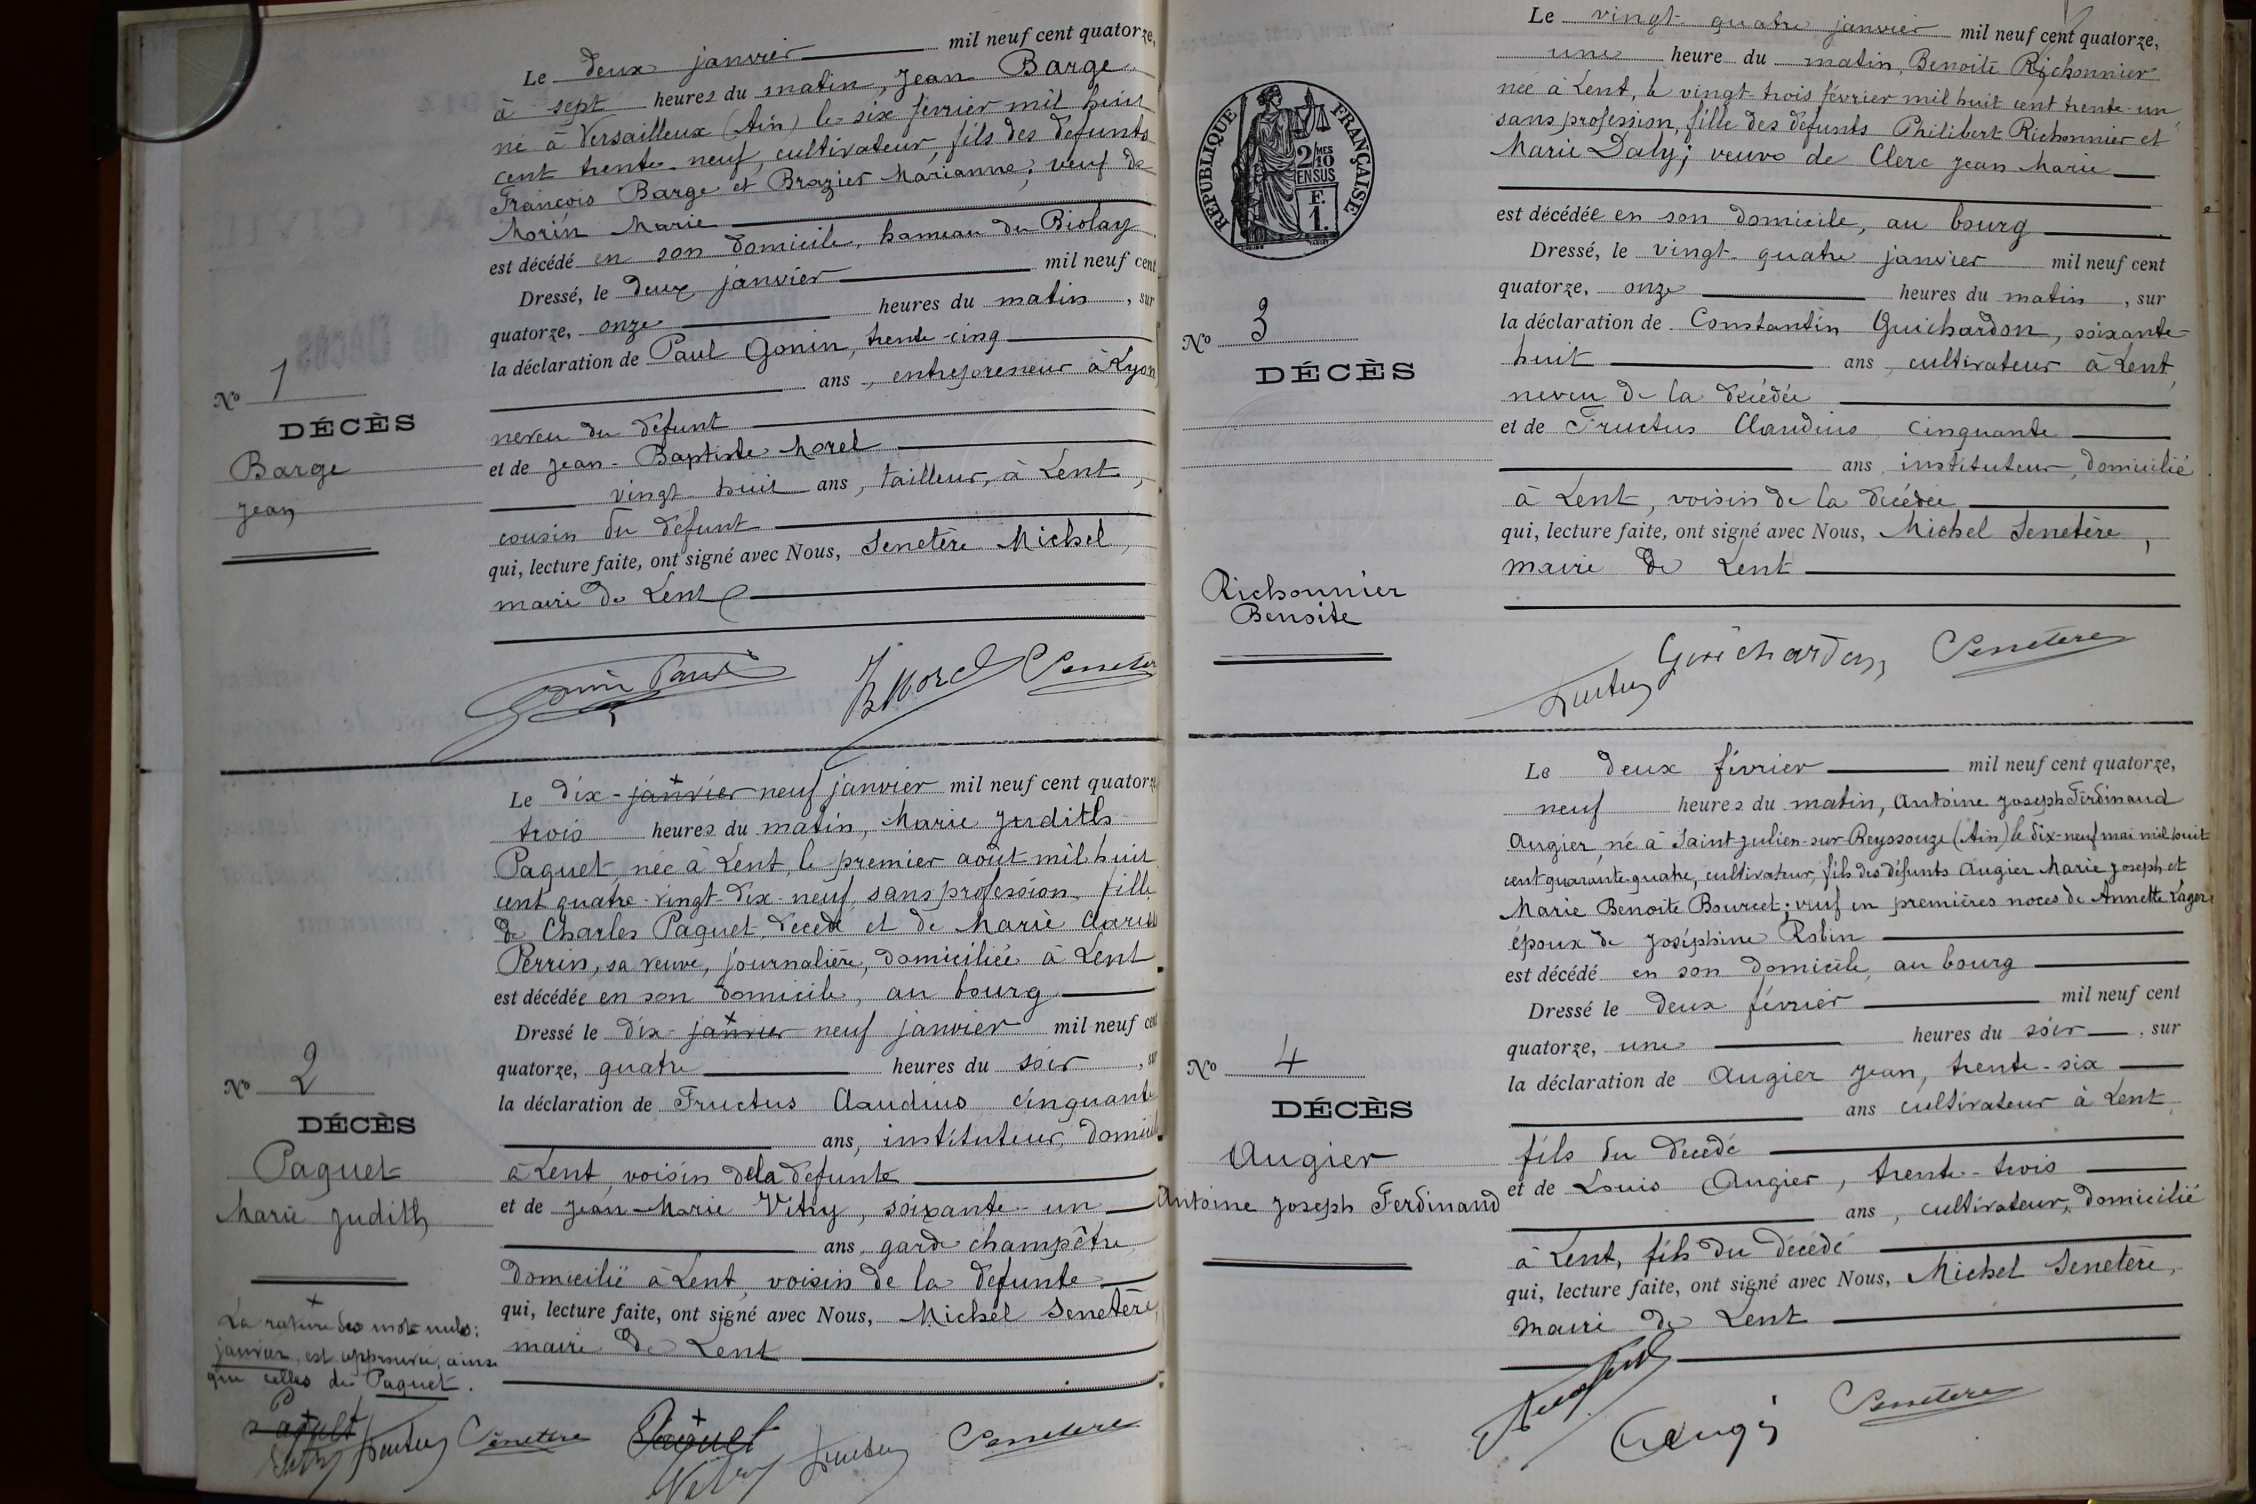 Le deux janvier mil neuf cent quatorze,
à sept heures du matin, Jean Barge
né à Versailleux (Ain) le six février mil huit
cent trente-neuf, cultivateur, fils des défunts
François Barge et Brazier Marianne; veuf de
Morin Marie
est décédé en son domicile, hameau du Biolay
Dressé, le deux janvier mil neuf cent
quatorze, onze heures du matin, sur
la déclaration de Paul Gonin, trente-cinq
ans, entrepreneur à Lyon
neveu du défunt
et de Jean-Baptiste Morel
vingt-huit ans, tailleur, à Lent,
cousin du défunt
qui, lecture faite, ont signé avec Nous, Senetère Michel,
maire de Lent
No 1
DÉCÈS
Barge
Jean
Gonin Paul
JB Morel
Senetère
Le dix-janvier neuf janvier mil neuf cent quatorze
trois heures du matin, Marie Judith
Paquet, née à Lent, le premier août mil huit
cent quatre-vingt-dix-neuf, sans profession, fille
de Charles Paquet décédé et de Marie
Perrin, sa veuve, journalière, domiciliée à Lent
est décédée en son domicile, au bourg
Dressé le dix-janvier neuf janvier mil neuf cent
quatorze, quatre heures du soir, sur
la déclaration de Fructus Claudius cinquante
ans, instituteur, domicilié
à Lent, voisin de la défunte
et de Jean-Marie Vitry, soixante-un
ans garde champêtre
domicilié à Lent, voisin de la défunte
qui, lecture faite, ont signé avec Nous, Michel Senetère,
maire de Lent
No 2
DÉCÈS
Paquet
Marie Judith
La rature des mots nuls:
janvier, est approuvée, ainsi
que celles de Paquet.
Paquet
Vitry Fructus Senetère
Paquet
Vitry Fructus Senetère
RÉPUBLIQUE FRANÇAISE
2 MES
10
EN SUS
F.
1.
Le vingt-quatre janvier mil neuf cent quatorze,
une heure du matin, Benoite Richonnier
née à Lent, le vingt-trois février mil huit cent trente-un,
sans profession, fille des défunts Philibert Richonnier et
Marie Daly; veuve de Clerc Jean Marie
est décédée en son domicile, au bourg
Dressé, le vingt-quatre janvier mil neuf cent
quatorze, onze heures du matin, sur
la déclaration de Constantin Guichardon, soixante-
huit ans, cultivateur à Lent,
neveu de la décédée
et de Fructus Claudius cinquante
ans, instituteur, domicilié
à Lent, voisin de la décédée
qui, lecture faite, ont signé avec Nous, Michel Senetère,
maire de Lent
No 3
DÉCÈS
Richonnier
Benoite
Fructus Guichardon Senetère
Le deux février mil neuf cent quatorze,
neuf heures du matin, Antoine Joseph Ferdinand
Augier, né à Saint-Julien-sur-Reyssouze (Ain) le dix-neuf mai mil huit
cent quarante-quatre, cultivateur, fils des défunts Augier Marie Joseph et
Marie Benoite Bourcet; veuf en premières noces de Annette
époux de Joséphine Robin
est décédé en son domicile, au bourg
Dressé le deux février mil neuf cent
quatorze, une heures du soir, sur
la déclaration de Augier Jean, trente-six
ans cultivateur à Lent,
fils du décédé
et de Louis Augier, trente-trois
ans, cultivateur, domicilié
à Lent, fils du décédé
qui, lecture faite, ont signé avec Nous, Michel Senetère,
maire de Lent
No 4
DÉCÈS
Augier
Antoine Joseph Ferdinand
Senetère